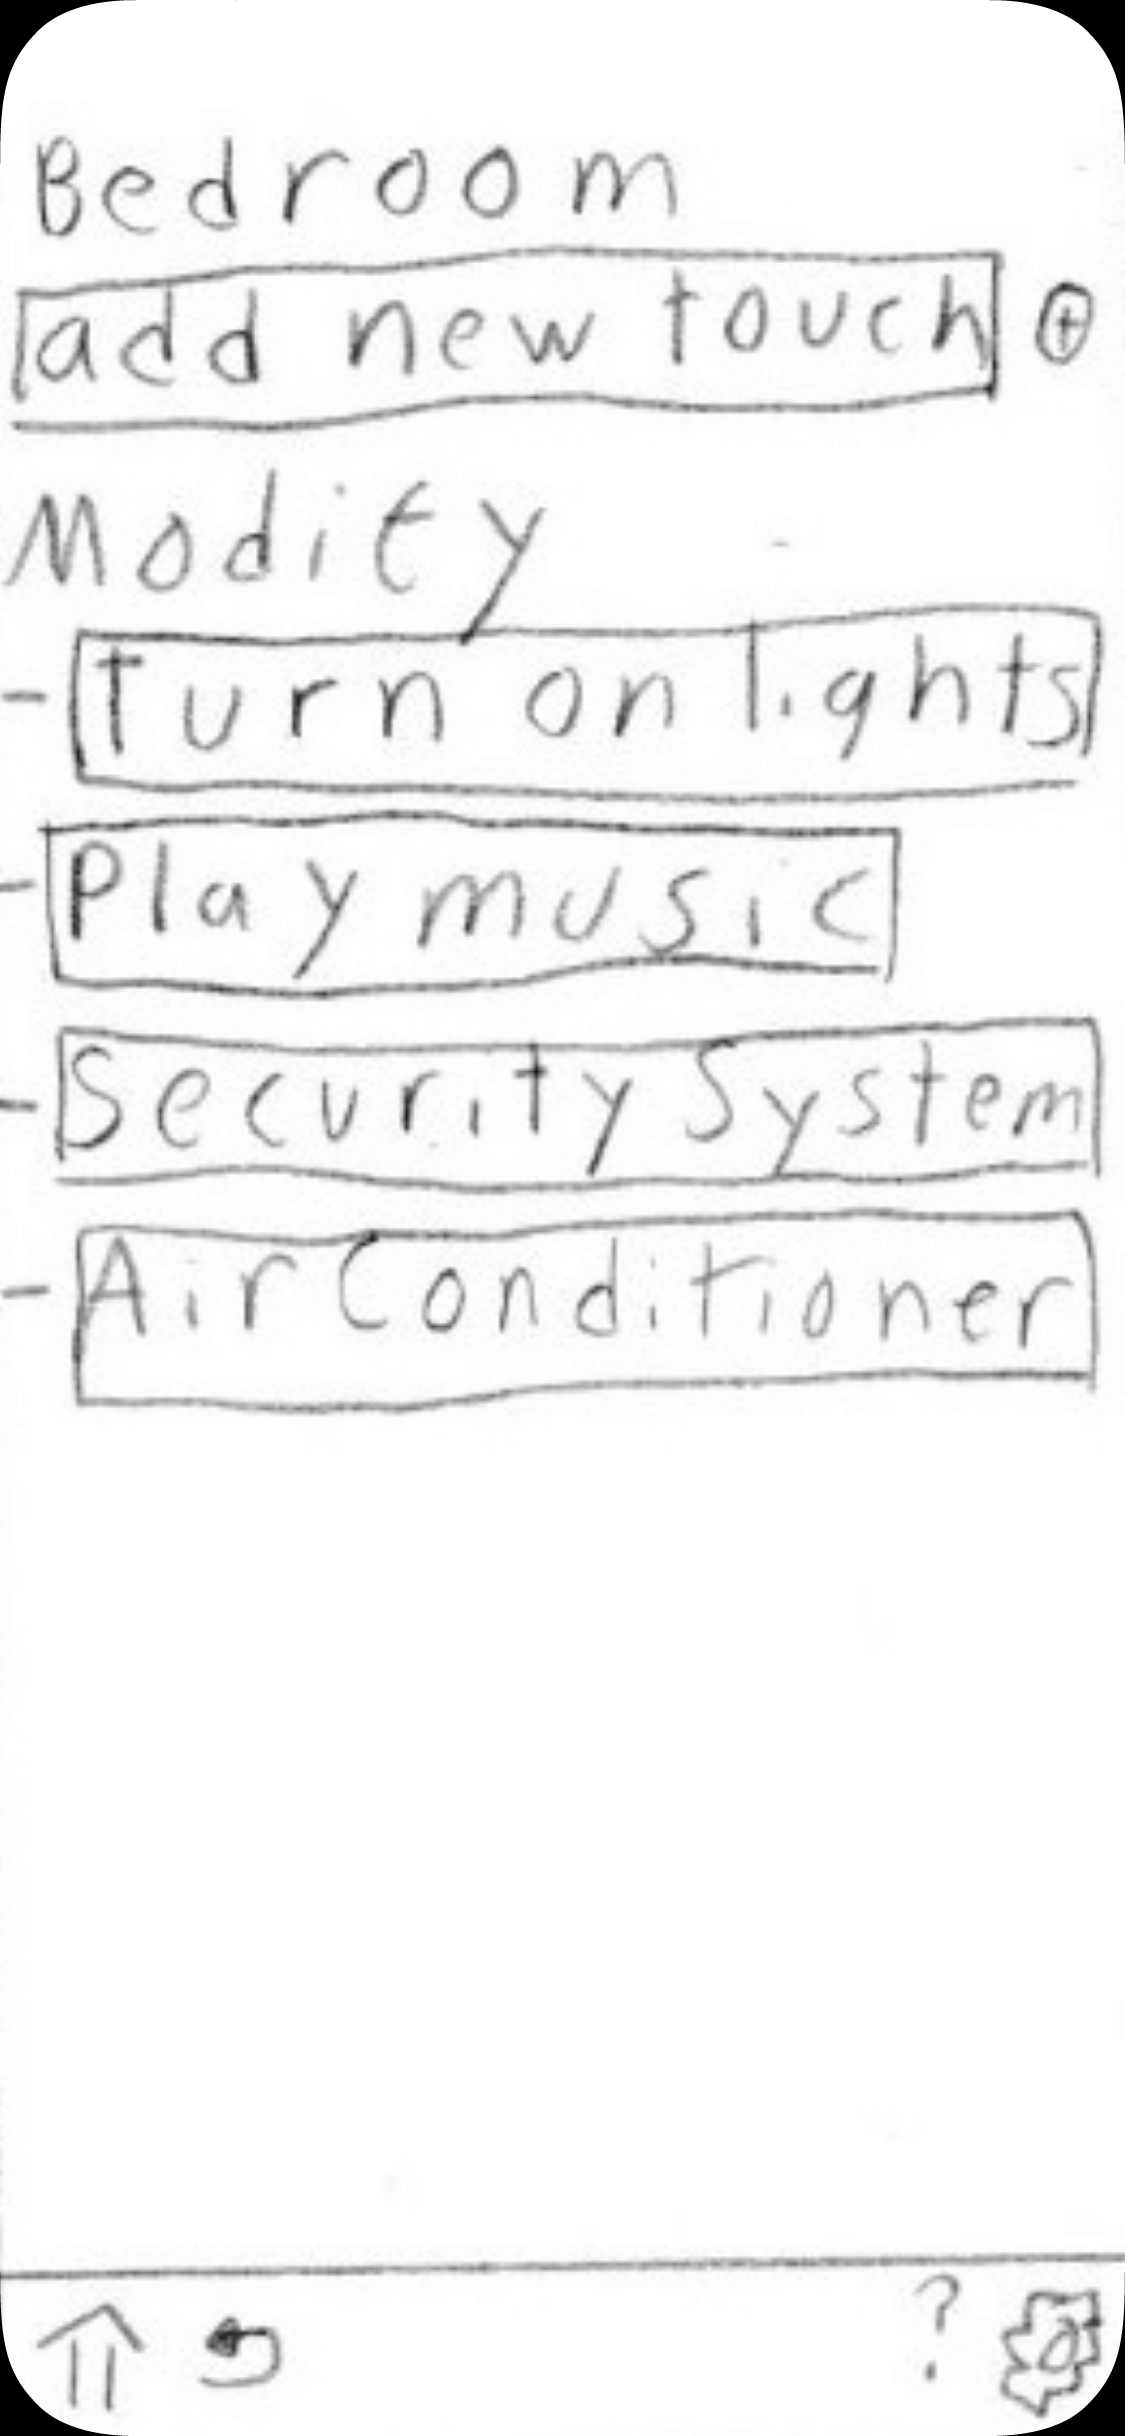 Bedroom
add new touch +
Modify
- Turn on lights
- Play music
- Security System
- Air Conditioner
?